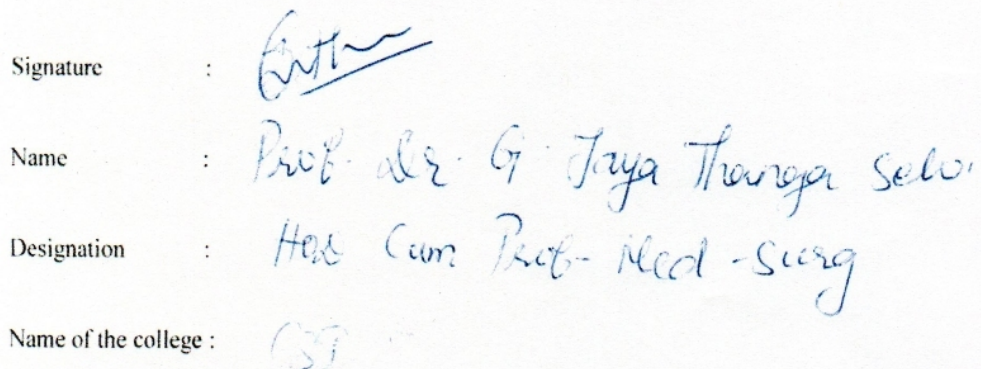 Signature :
Name : Prof. Dr. G. Jaya Thanga Selvi
Designation : HOD Cum Prof - Med - Surg
Name of the college : CSI